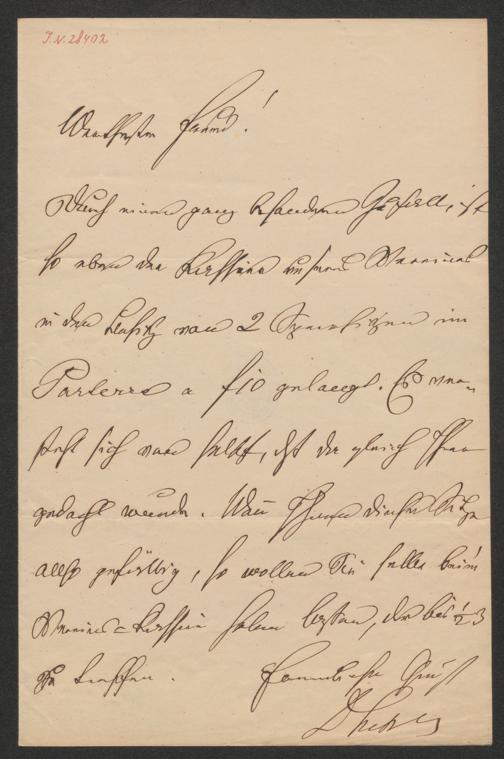 J.N. 28402
Werthester Freund!
Durch einen ganz besonderen Zufall, ist
so eben der Kassier unseres Vereines
in den Besitz von 2 Sperrsitzen im
Parterre a f 10 gelangt. Es ver-
steht sich von selbst, daß da gleich Ihrer
gedacht wurde. Wenn Ihnen diese Sitze
also gefällig, so wollen Sie selbe beim
Vereins-Kassier holen lassen, der bis ½ 3
zu treffen.
Freundlichst Grüßt